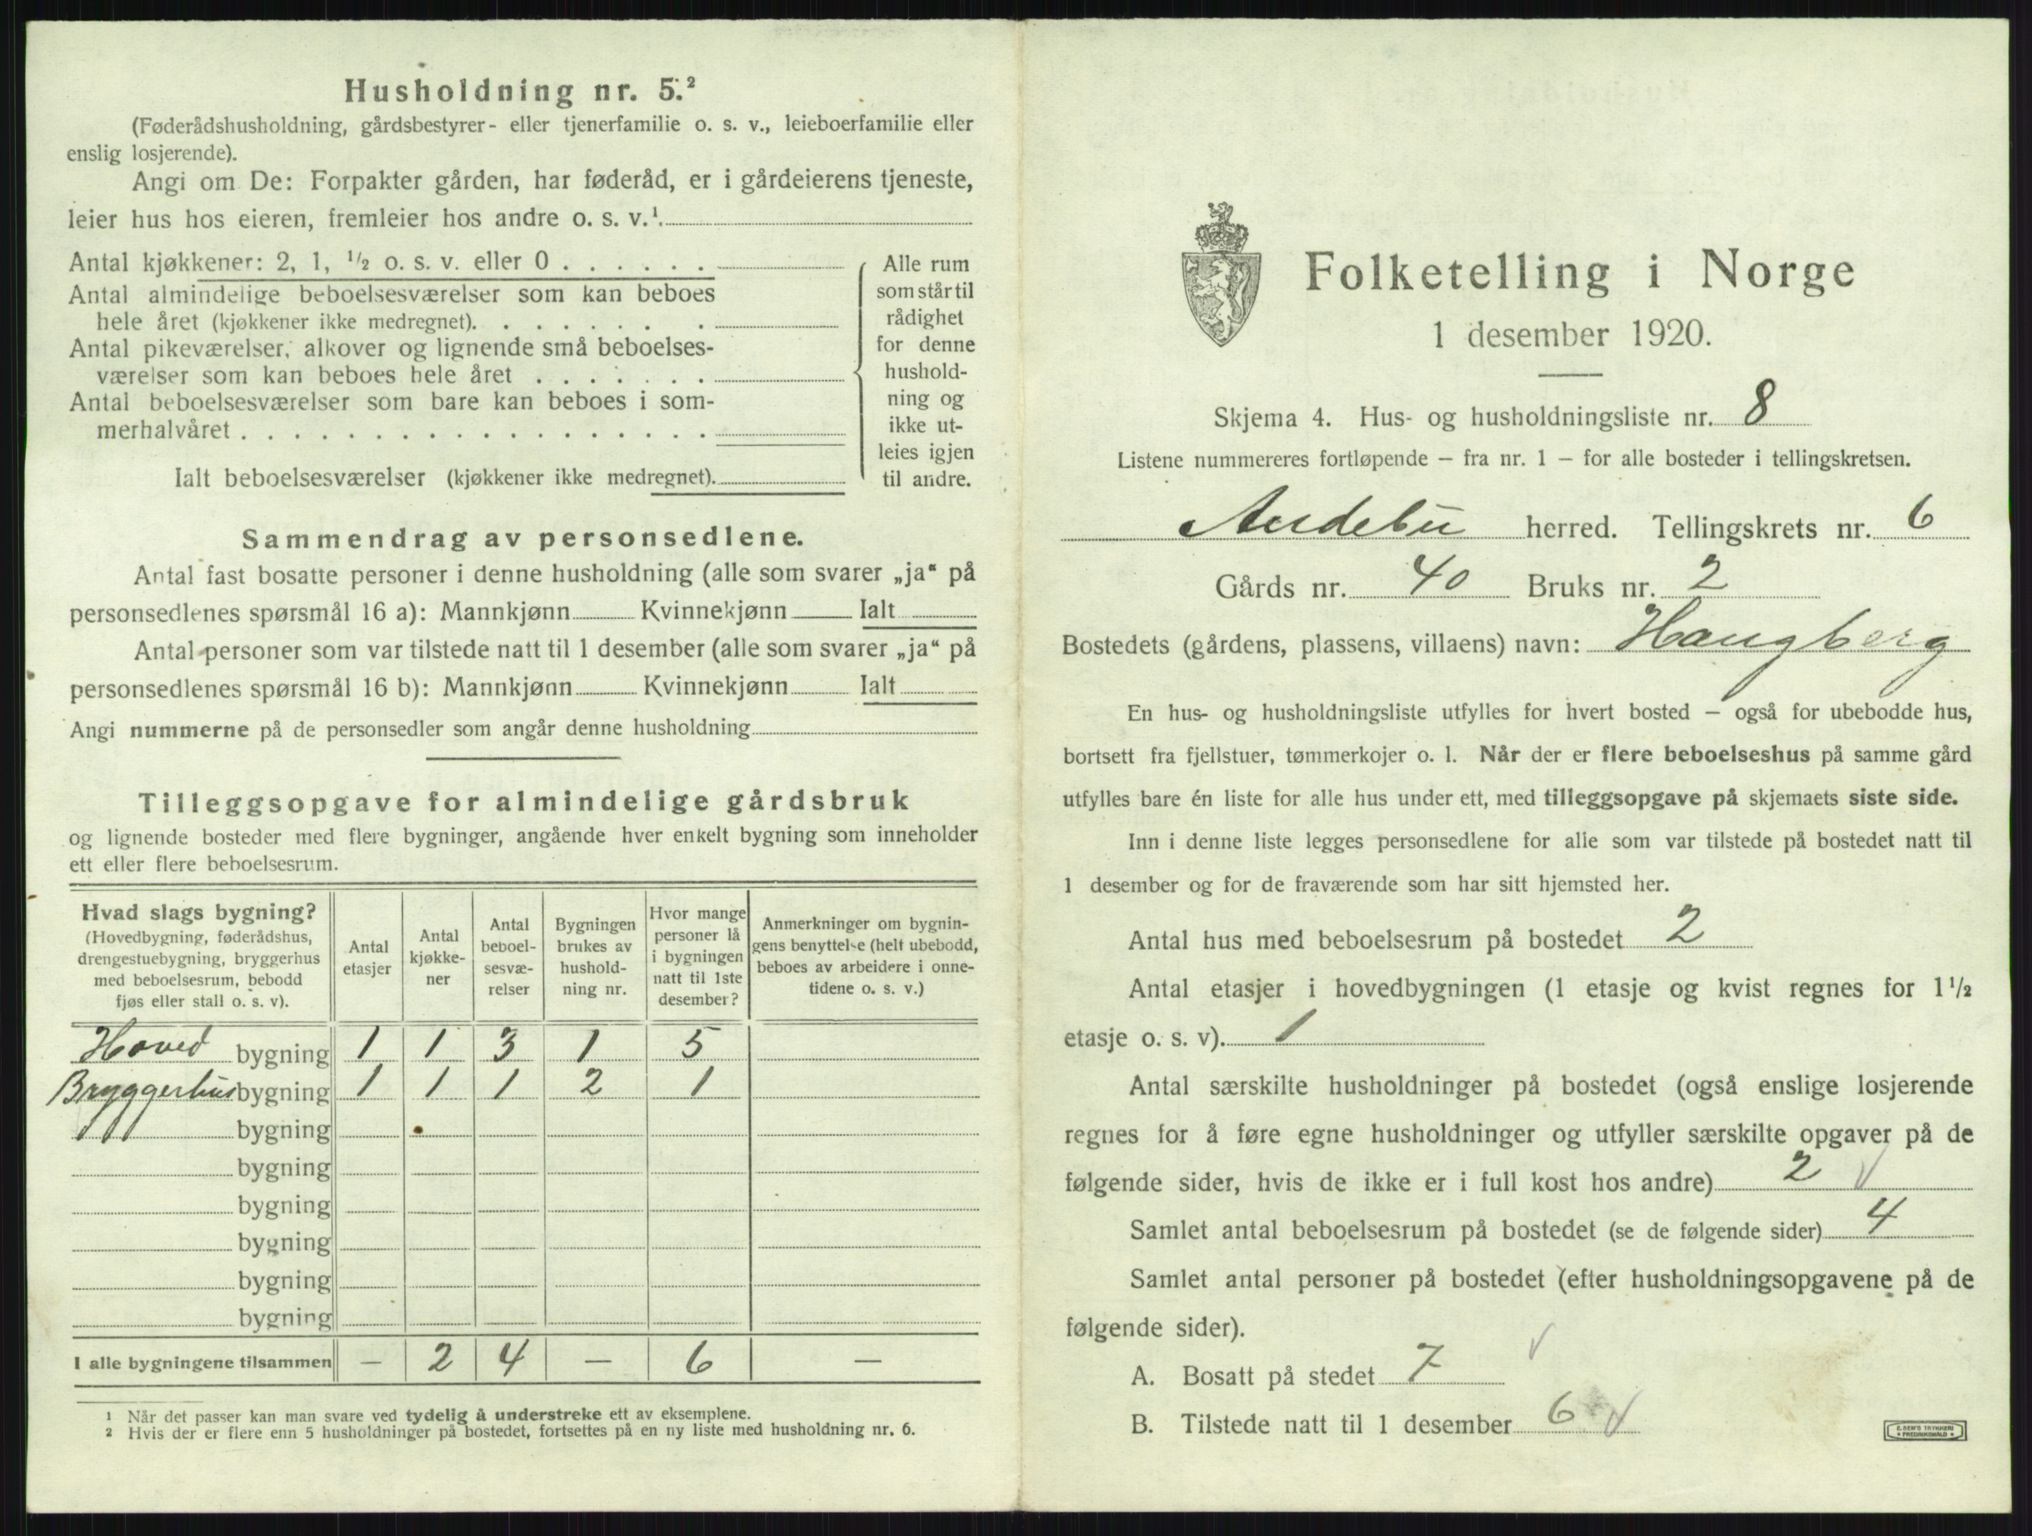 Husholdning nr. 5.²
(Føderådshusholdning, gårdsbestyrer- eller tjenerfamilie o. s. v., leieboerfamilie eller
enslig losjerende).
Angi om De: Forpakter gården, har føderåd, er i gårdeierens tjeneste,
leier hus hos eieren, fremleier hos andre o. s. v.¹.
Antal kjøkkener: 2, 1, ½ o. s. v. eller 0 . . . . . .
Antal almindelige beboelsesværelser som kan beboes
hele året (kjøkkener ikke medregnet). . . . . . . . .
Antal pikeværelser, alkover og lignende små beboelses-
værelser som kan beboes hele året . . . . . . .
Antal beboelsesværelser som bare kan beboes i som-
merhalvåret . . . . . . . . . . . . . . . . . .
Ialt beboelsesværelser (kjøkkener ikke medregnet).
Alle rum
som står til
rådighet
for denne
hushold-
ning og
ikke ut-
leies igjen
til andre.
Sammendrag av personsedlene.
Antal fast bosatte personer i denne husholdning (alle som svarer „ja“ på
personsedlenes spørsmål 16 a): Mannkjønn Kvinnekjønn Ialt
Antal personer som var tilstede natt til 1 desember (alle som svarer „ja“ på
personsedlenes spørsmål 16 b): Mannkjønn Kvinnekjønn Ialt
Angi nummerne på de personsedler som angår denne husholdning
Tilleggsopgave for almindelige gårdsbruk
og lignende bosteder med flere bygninger, angående hver enkelt bygning som inneholder
ett eller flere beboelsesrum.
Hvad slags bygning?
(Hovedbygning, føderådshus,
drengestuebygning, bryggerhus
med beboelsesrum, bebodd
fjøs eller stall o. s. v).
Antal
etasjer
Antal
kjøkke-
ner
Antal
beboel-
sesvæ-
relser
Bygningen
brukes av
hushold-
ning nr.
Hvor mange
personer lå
i bygningen
natt til 1ste
desember?
Anmerkninger om bygnin-
gens benyttelse (helt ubebodd,
beboes av arbeidere i onne-
tidene o. s. v.)
Hoved bygning 1 1 3 1 5
Bryggerhus bygning 1 1 1 2 1
bygning
bygning
bygning
bygning
bygning
bygning
I alle bygningene tilsammen — 2 4 — 6 —
¹ Når det passer kan man svare ved tydelig å understreke ett av eksemplene.
² Hvis der er flere enn 5 husholdninger på bostedet, fortsettes på en ny liste med husholdning nr. 6.
Folketelling i Norge
1 desember 1920.
Skjema 4. Hus- og husholdningsliste nr. 8
Listene nummereres fortløpende – fra nr. 1 – for alle bosteder i tellingskretsen.
Andebu herred. Tellingskrets nr. 6
Gårds nr. 40 Bruks nr. 2
Bostedets (gårdens, plassens, villaens) navn: Haugberg
En hus- og husholdningsliste utfylles for hvert bosted – også for ubebodde hus,
bortsett fra fjellstuer, tømmerkojer o. l. Når der er flere beboelseshus på samme gård
utfylles bare én liste for alle hus under ett, med tilleggsopgave på skjemaets siste side.
Inn i denne liste legges personsedlene for alle som var tilstede på bostedet natt til
1 desember og for de fraværende som har sitt hjemsted her.
Antal hus med beboelsesrum på bostedet 2
Antal etasjer i hovedbygningen (1 etasje og kvist regnes for 1½
etasje o. s. v). 1
Antal særskilte husholdninger på bostedet (også enslige losjerende
regnes for å føre egne husholdninger og utfyller særskilte opgaver på de
følgende sider, hvis de ikke er i full kost hos andre) 2 √
Samlet antal beboelsesrum på bostedet (se de følgende sider) 4
Samlet antal personer på bostedet (efter husholdningsopgavene på de
følgende sider).
A. Bosatt på stedet 7 √
B. Tilstede natt til 1 desember 6 √